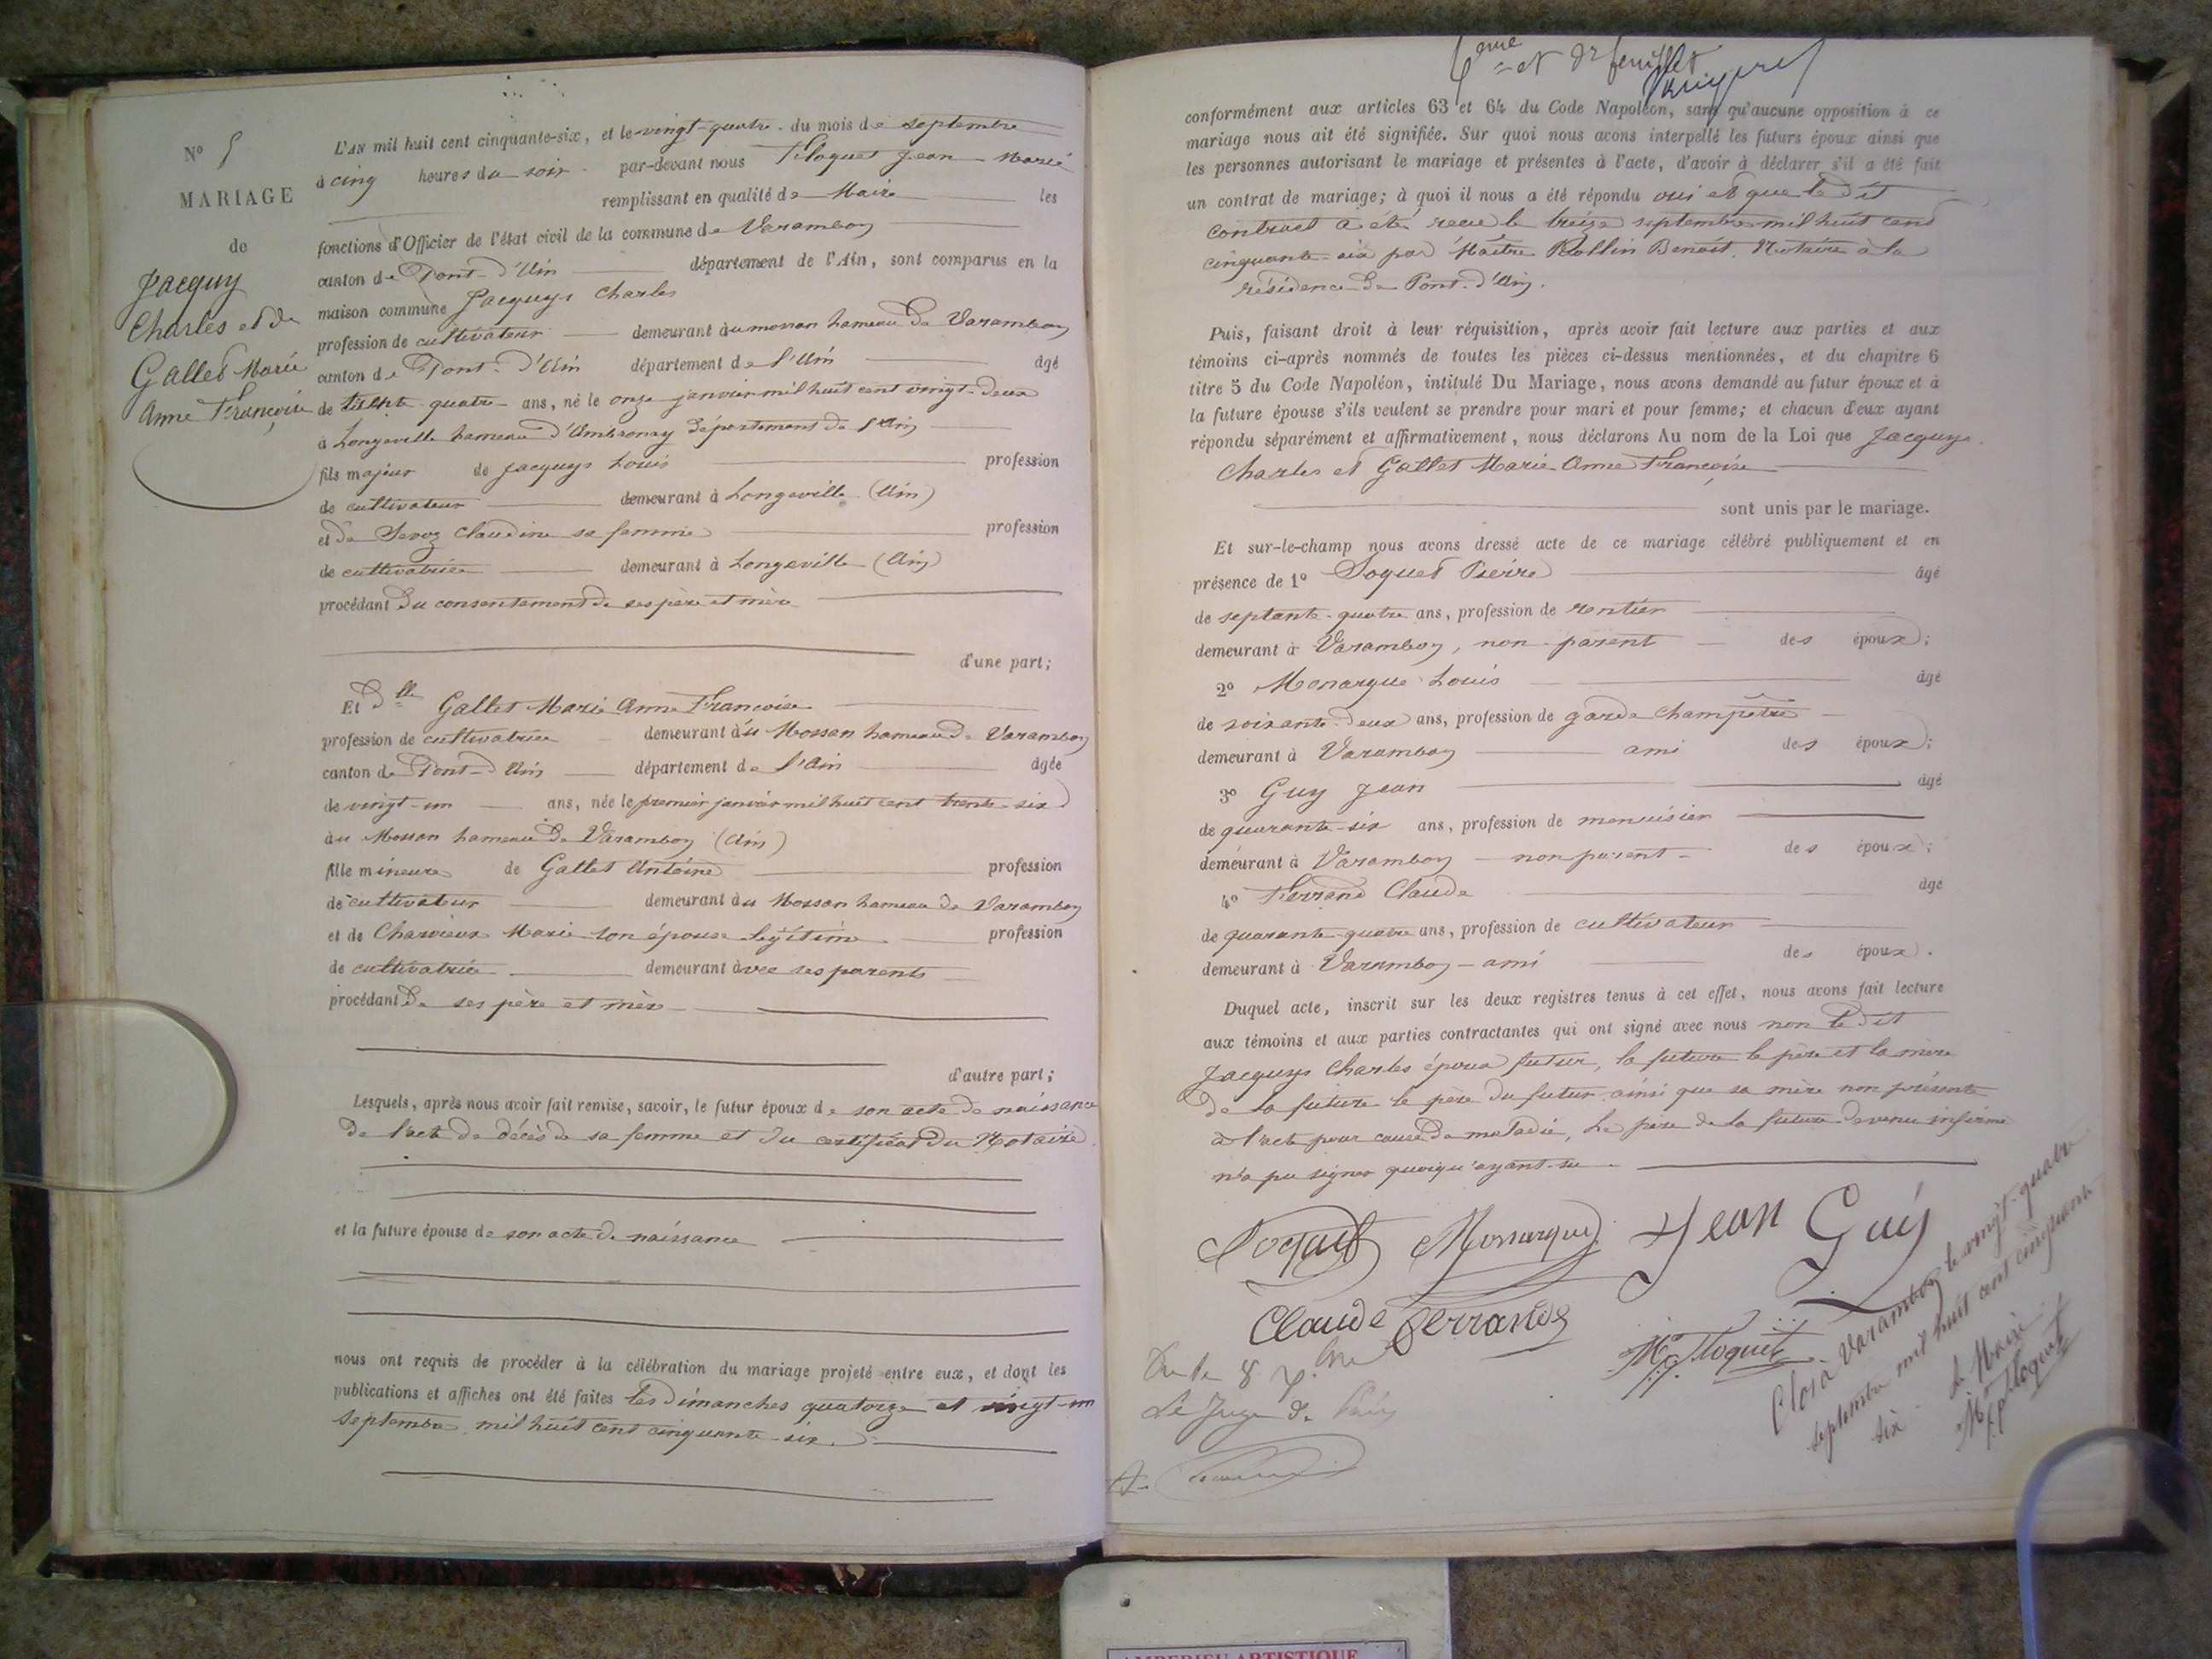 N° 5
MARIAGE
de
Jacquy
Charles et de
Gallet Marie
Anne Françoise
L'AN mil huit cent cinquante-six, et le vingt-quatre du mois de septembre
à cinq heures du soir par-devant nous Floquet Jean Marie
remplissant en qualité de Maire les
fonctions d'Officier de l'état civil de la commune de Varambon
canton de Pont-d'Ain département de l'Ain, sont comparus en la
maison commune Jacquys Charles
profession de cultivateur demeurant au mossan hameau de Varambon
canton de Pont-d'Ain département de l'Ain âgé
de trente quatre ans, né le onze janvier mil huit cent vingt-deux
à Longeville hameau d'Ambronay département de l'Ain
fils majeur de Jacquys Louis profession
de cultivateur demeurant à Longeville (Ain)
et de Claudine sa femme profession
de cultivatrice demeurant à Longeville (Ain)
procédant du consentement de ses père et mère
d'une part;
Et Dlle Gallet Marie Anne Françoise
profession de cultivatrice demeurant au Mossan hameau de Varambon
canton de Pont-d'Ain département de l'Ain âgée
de vingt-un ans, née le premier janvier mil huit cent trente-six
au Mossan hameau de Varambon (Ain)
fille mineure de Gallet Antoine profession
de cultivateur demeurant au Mossan hameau de Varambon
et de Charvieux Marie son épouse légitime profession
de cultivatrice demeurant avec ses parents
procédant de ses père et mère
d'autre part;
Lesquels, après nous avoir fait remise, savoir, le futur époux de son acte de naissance
de l'acte de décès de sa femme et du certificat du Notaire
et la future épouse de son acte de naissance
nous ont requis de procéder à la célébration du mariage projeté entre eux, et dont les
publications et affiches ont été faites les dimanches quatorze et vingt-un
septembre mil huit cent cinquante-six.
6eme et feuillet
conformément aux articles 63 et 64 du Code Napoléon, sans qu'aucune opposition à ce
mariage nous ait été signifiée. Sur quoi nous avons interpellé les futurs époux ainsi que
les personnes autorisant le mariage et présentes à l'acte, d'avoir à déclarer s'il a été fait
un contrat de mariage; à quoi il nous a été répondu oui et que le dit
contract a été recu le treize septembre mil huit cent
cinquante-six par Maître Rollin Benoit, Notaire à la
résidence de Pont-d'Ain.
Puis, faisant droit à leur réquisition, après avoir fait lecture aux parties et aux
témoins ci-après nommés de toutes les pièces ci-dessus mentionnées, et du chapitre 6
titre 5 du Code Napoléon, intitulé Du Mariage, nous avons demandé au futur époux et à
la future épouse s'ils veulent se prendre pour mari et pour femme; et chacun d'eux ayant
répondu séparément et affirmativement, nous déclarons Au nom de la Loi que Jacquys
Charles et Gallet Marie Anne Françoise
sont unis par le mariage.
Et sur-le-champ nous avons dressé acte de ce mariage célébré publiquement et en
présence de 1° Soquet Pierre âgé
de septante-quatre ans, profession de rentier
demeurant à Varambon, non parent des époux;
2° Monarque Louis âgé
de soixante-deux ans, profession de garde champêtre
demeurant à Varambon ami des époux;
3° Guy Jean âgé
de quarante-six ans, profession de menuisier
demeurant à Varambon non parent des époux;
4° Ferrand Claude âgé
de quarante-quatre ans, profession de cultivateur
demeurant à Varambon - ami des époux.
Duquel acte, inscrit sur les deux registres tenus à cet effet, nous avons fait lecture
aux témoins et aux parties contractantes qui ont signé avec nous non le dit
Jacquys Charles époux futur, la future le père et la mère
de la future le père du futur ainsi que sa mère non présente
à l'acte pour cause de maladie, le père de la future devenu infirme
n'a pu signer quoiqu'ayant su
Soquet Monarque Jean Guy
Claude Ferrand
Floquet
Vu le 8
Le Juge de
Clos à Varambon le vingt-quatre
septembre mil huit cent cinquante
six
le Maire
Floquet
AMBERIEU ARTISTIQUE